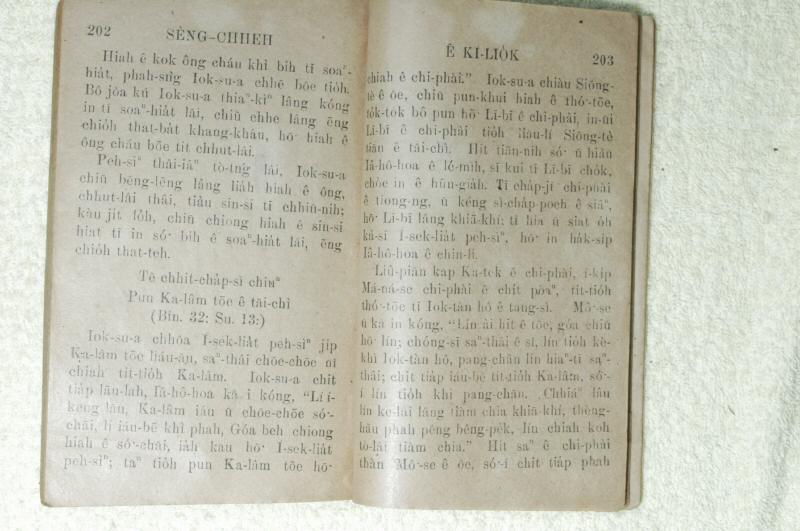 202 SÈNG-CHHEH
Hiah ê kok ông cháu khì bih tī soaⁿ-
hia̍t, phah-sǹg Iok-su-a chhē bōe tio̍h.
Bô jōa kú Iok-su-a thiaⁿ-kìⁿ lâng kóng
in tī soaⁿ-hia̍t lāi, chiū chhe lâng ēng
chio̍h that-ba̍t khang-kháu, hō͘ hiah ê
ông cháu bōe tit chhut-lâi.
Peh-sìⁿ thâi-iâⁿ tò-tńg lâi, Iok-su-a
chiū bēng-lēng lâng lia̍h hiah ê ông,
chhut-lâi thâi, tiàu sin-si tī chhiū-nih;
kàu ji̍t lo̍h, chiū chiong hiah ê sin-si
hiat tī in só͘ bih ê soaⁿ-hia̍t lāi, ēng
chio̍h that-teh.
Tē chhit-cha̍p-sì chiuⁿ
Pun Ka-lâm tōe ê tāi-chì
(Bîn. 32: Su. 13:)
Iok-su-a chhōa Í-sek-lia̍t peh-sìⁿ ji̍p
Ka-lâm tōe liáu-āu, saⁿ-thâi chōe-chōe nî
chiah tit-tio̍h Ka-lâm. Iok-su-a chit
tia̍p lāu-lah, Iâ-hô-hoa kā i kóng, "Lí í-
keng lāu, Ka-lâm iáu ū chōe-chōe só͘-
chāi, lí iáu-bē khì phah, Góa beh chiong
hiah ê só͘-chāi, ia̍h kàu hō͘ Í-sek-lia̍t
peh-sìⁿ; taⁿ tio̍h pun Ka-lâm tōe hō͘
Ê KÌ-LIO̍K 203
chiah ê chi-phài." Iok-su-a chiàu Siōng-
tè ê ōe, chiū pun-khui hiah ê thó͘-tōe,
to̍k-to̍k bô pun hō͘ Lī-bī ê chi-phài, in-ūi
Lī-bī ê chi-phài tio̍h liāu-lí Siōng-tè
tiān ê tāi-chì. Hit tiān-nih só͘ ū hiàn
Iâ-hô-hoa ê lé-mi̍h, sī kui tī Lī-bī cho̍k,
chòe in ê hūn-gia̍h. Tī cha̍p-jī chi-phài
ê tiong-ng, ū kéng sì-cha̍p-poeh ê siâⁿ,
hō͘ Lī-bī lâng khiā-khí; tī hia ū siat o̍h
kà-sī Í-sek-lia̍t peh-sìⁿ, hō͘ in ha̍k-si̍p
Iâ-hô-hoa ê chin-lí.
Liû-piān kap Ka-tek ê chi-phài, í-ki̍p
Má-ná-se chi-phài ê chi̍t pòaⁿ, tit-tio̍h
thó͘-tōe tī Iok-tàn hô ê tang-sì. Mô͘-se
ū kā in kóng, "Lín ài hit ê tōe, góa chiū
hō͘ lín; chóng-sī saⁿ-thâi ê sî, lín tio̍h kè-
khì Iok-tàn hô, pang-chān lín hiaⁿ-tī saⁿ-
thâi; chit tia̍p iáu-bē tit-tio̍h Ka-lâm, só͘-
í lín tio̍h khì pang-chān. Chhiáⁿ lâu
lín ke-lāi lâng tiàm chia khiā-khí, thèng-
hāu phah pêng bêng-pe̍k, lín chiah koh
tò-lâi tiàm chia." Hit saⁿ ê chi-phài
thàn Mô͘-se ê ōe, só͘-í chit tia̍p phah